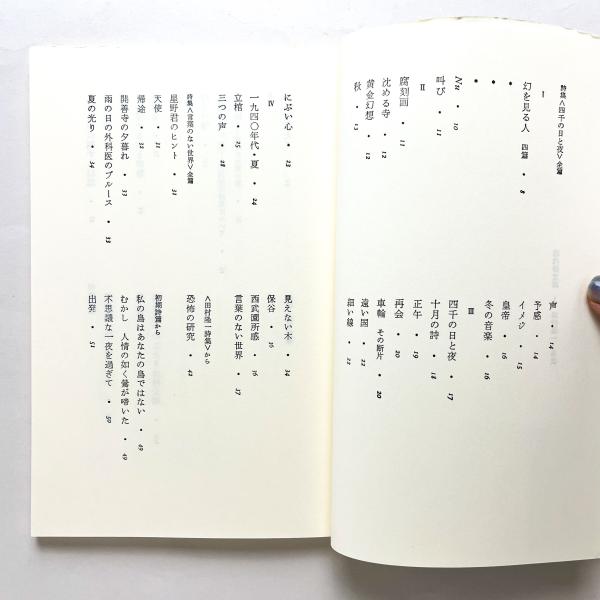 詩集〈四千の日と夜〉全篇
Ⅰ
幻を見る人 四篇 • 8
•
•
•
•
Nu • 10
叫び • 11
Ⅱ
腐刻画 • 11
沈める寺 • 12
黄金幻想 • 12
秋 • 13
声 • 14
予感 • 14
イメジ • 15
皇帝 • 16
冬の音楽 • 16
Ⅲ
四千の日と夜 • 17
十月の詩 • 18
正午 • 19
再会 • 20
車輪 その断片 • 20
遠い国 • 22
細い線 • 22
にぶい心 • 23
Ⅳ
一九四〇年代・夏 • 24
立棺 • 25
三つの声 • 28
詩集〈言葉のない世界〉全篇
星野君のヒント • 31
天使 • 31
帰途 • 32
開善寺の夕暮れ • 33
雨の日の外科医のブルース • 33
夏の光り • 34
見えない木 • 34
保谷 • 16
西武園所感 • 16
言葉のない世界 • 37
〈田村隆一詩集〉から
恐怖の研究 • 42
初期詩篇から
私の鳥はあなたの鳥ではない • 49
むかし 人情の如く鶯が啼いた • 49
不思議な一夜を過ぎて • 50
出発 • 51